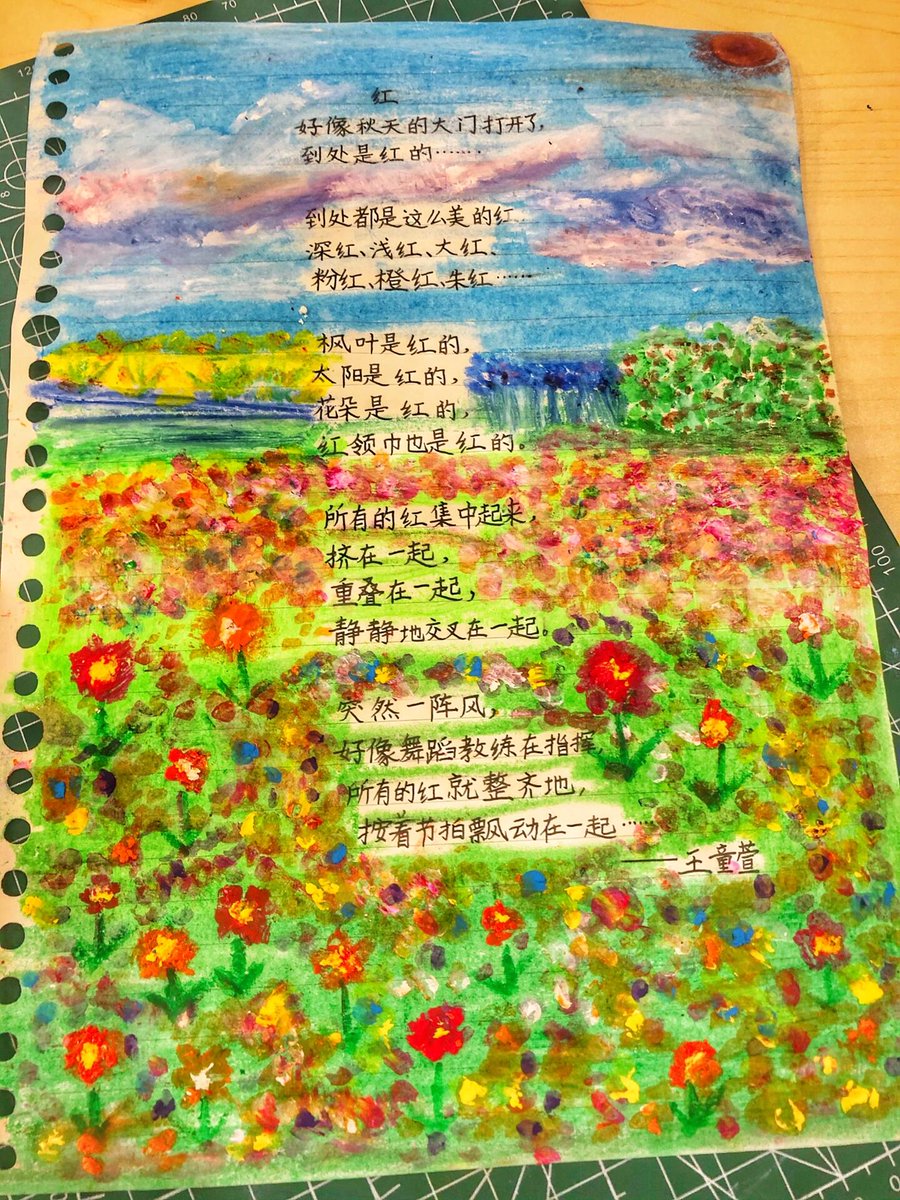 红
好像秋天的大门打开了,
到处是红的……
到处都是这么美的红
深红、浅红、大红、
粉红、橙红、朱红……
枫叶是红的,
太阳是红的,
花朵是红的,
红领巾也是红的。
所有的红集中起来,
挤在一起,
重叠在一起,
静静地交叉在一起。
突然一阵风,
好像舞蹈教练在指挥,
所有的红就整齐地,
按着节拍飘动在一起……
——王童萱
120
80
70
100